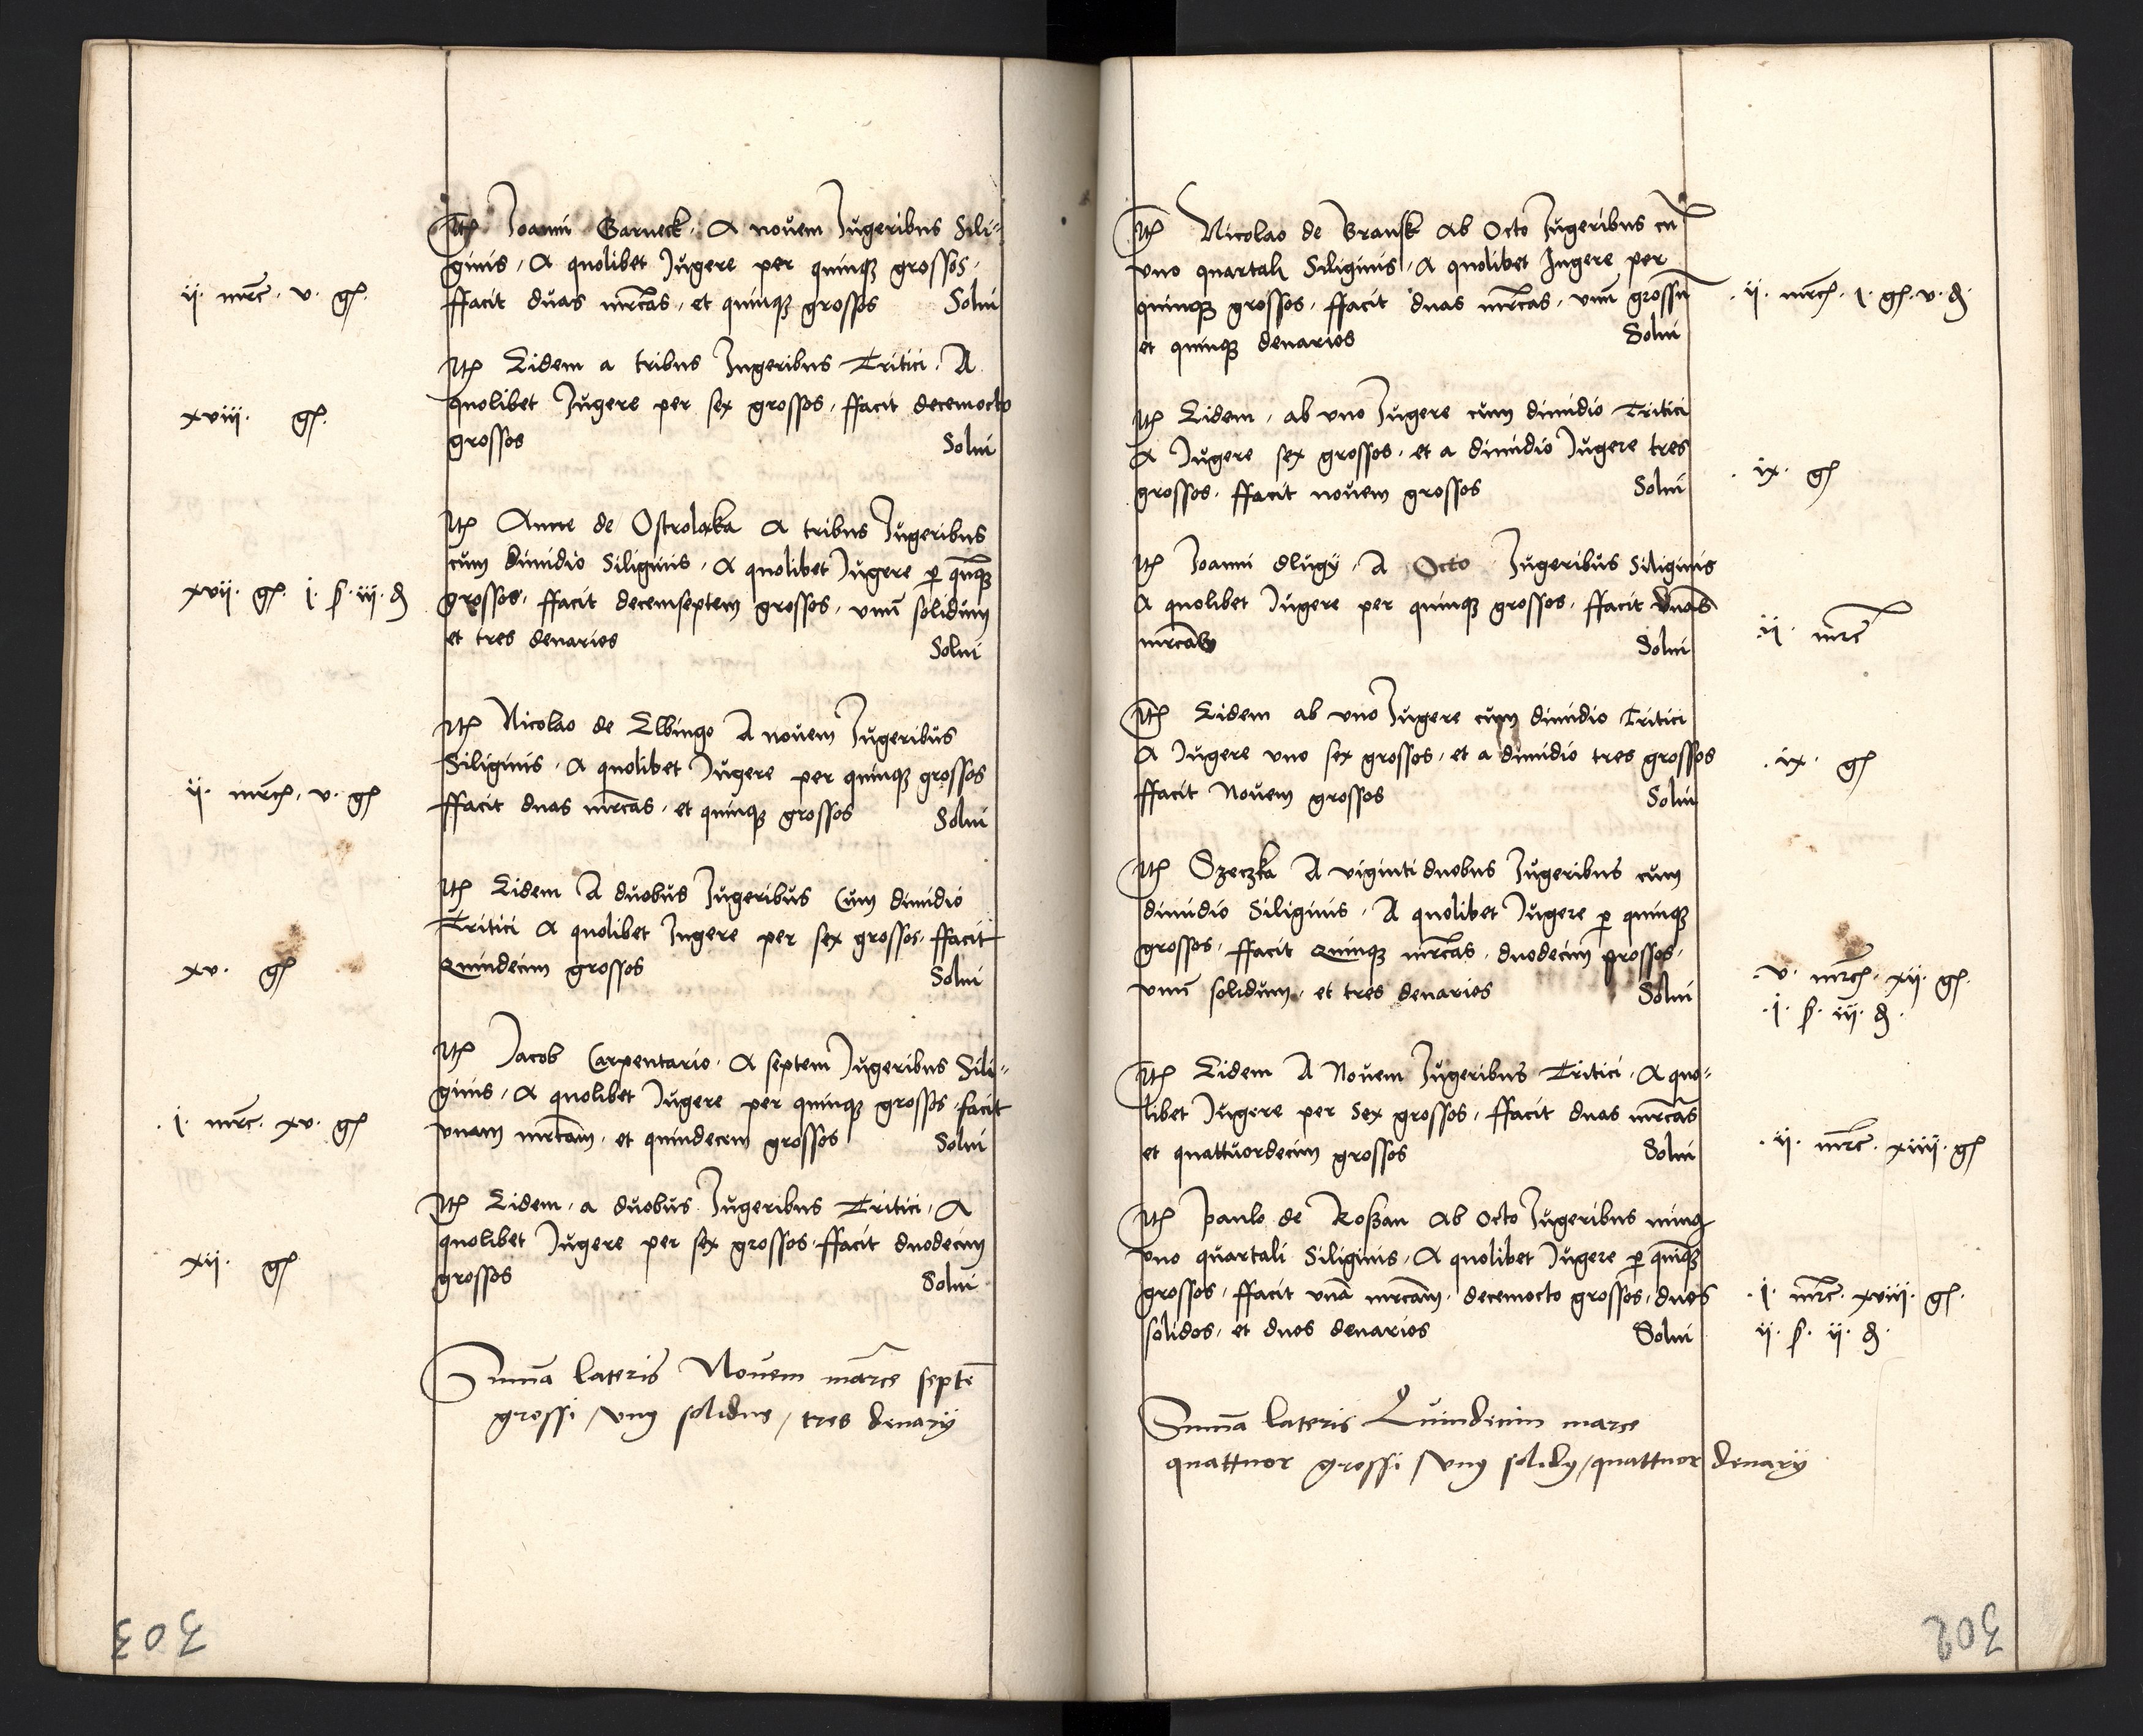 Itē Joanni Garneck · A novem Jugeribus Sili-
ginis, A quolibet Jugere per quinqꝫ grossos,
ii · mrc · v · gſ · ffacit duas mrcas, et quinqꝫ grossos Solui
Itē Eidem a tribus Jugeribus Tritici · A
xviii · gſ · quolibet Jugere per sex grossos, ffacit decemocto
grossos Solui
Itē Anne de Ostrolaka A tribus Jugeribus
cum dimidio Siliginis, A quolibet Jugere ꝑ quinqꝫ
xvii · gſ · i · ſ · iii · ₰ grossos, ffacit decemseptem grossos, unū solidum
et tres denarios Solui
Itē Nicolao de Elbingo A novem Jugeribus
Siliginis, A quolibet Jugere per quinqꝫ grossos
ii · mrcſ · v · gſ ffacit duas mrcas, et quinqꝫ grossos Solui
Itē Eidem A duobus Jugeribus Cum dimidio
Tritici A quolibet Jugere per sex grossos, ffacit
xv · gſ Quindecim grossos Solui
Itē Jacob Carpentario · A septem Jugeribus Sili-
ginis, A quolibet Jugere per quinqꝫ grossos, facit
· i · mrc · xv · gſ unam mrcam, et quindecem grossos Solui
Itē Eidem, a duobus Jugeribus Tritici, A
quolibet Jugere per sex grossos, ffacit duodecim
xii · gſ grossos Solui
Sumā lateris Novem marce septē
grossi / unꝯ solidus / tres denarÿ
303
Itē Nicolao de Bransk Ab Octo Jugeribus cū
uno quartali Siliginis, A quolibet Jugere per
quinqꝫ grossos, ffacit duas mrcas, unū grossū · ii · mrcſ · i · gſ · v · ₰ ·
et quinqꝫ denarios Solui
Itē Eidem, ab uno Jugere cum dimidio Tritici
A Jugere sex grossos, et a dimidio Jugere tres
grossos, ffacit novem grossos Solui · ix · gſ
Itē Joanni dlugÿ, A Octo Jugeribus Siliginis
A quolibet Jugere per quinqꝫ grossos, ffacit duas
mrcas Solui · ii · mrc
Itē Eidem ab uno Jugere cum dimidio Tritici
A Jugere uno sex grossos, et a dimidio tres grossos
ffacit Novem grossos Solui · ix · gſ
Itē Szeczka A viginti duobus Jugeribus cum
dimidio Siliginis, A quolibet Jugere ꝑ quinqꝫ
grossos, ffacit Quinqꝫ mrcas, duodecim grossos,
· v · mrcſ · xii · gſ ·
unū solidum, et tres denarios Solui · i · ſ · iii · ₰ ·
Itē Eidem A Novem Jugeribus Tritici, A quo-
libet Jugere per Sex grossos, ffacit duas mrcas
et quattuordecim grossos Solui · ii · mrc · xiiii · gſ
Itē Paulo de Roßan Ab Octo Jugeribus minꝯ
uno quartali Siliginis, A quolibet Jugere ꝑ quinqꝫ
grossos, ffacit unā mrcam, decemocto grossos, duos · i · mrc · xviii · gſ ·
solidos, et duos denarios Solui ii · ſ · ii · ₰ ·
Sumā lateris Quindecim marce
quattuor grossi / unꝯ solidꝯ / quattuor denarÿ
302